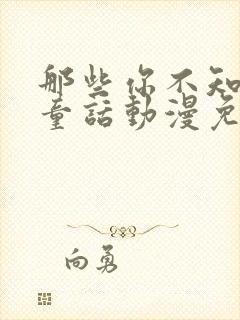 那些你不知
童話動漫免
向勇